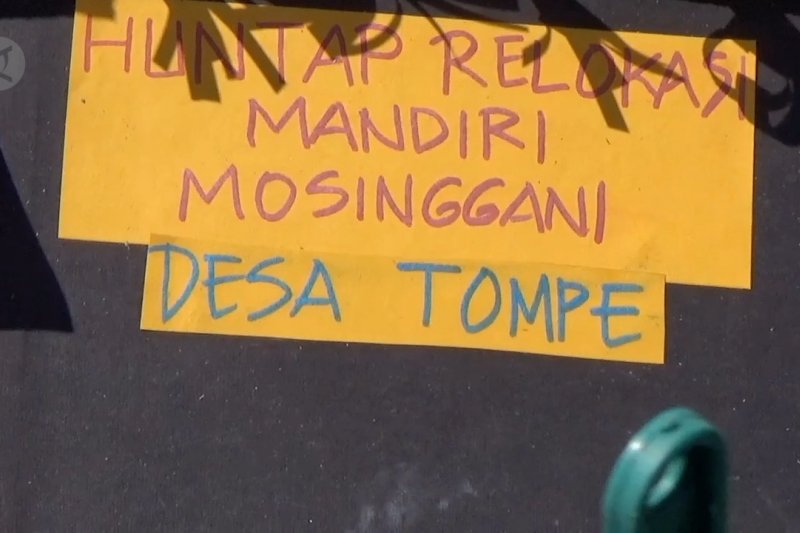 HUNTAP RELOKASI
MANDIRI
MOSINGGANI
DESA TOMPE